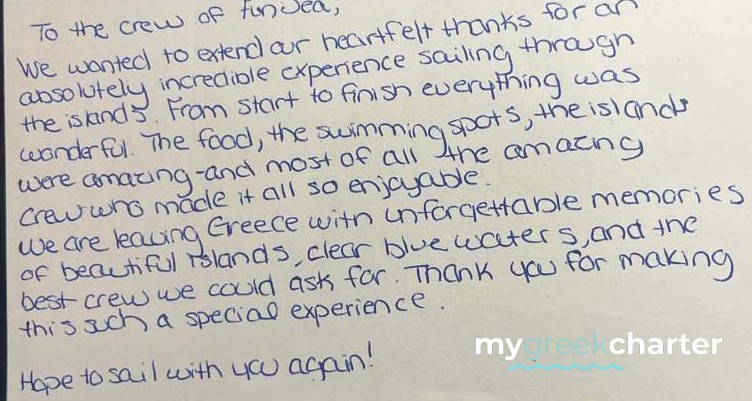 To the crew of Fun Sea,
We wanted to extend our heartfelt thanks for an
absolutely incredible experience sailing through
the islands. From start to finish everything was
wonderful. The food, the swimming spots, the islands
were amazing - and most of all the amazing
crew who made it all so enjoyable.
We are leaving Greece with unforgettable memories
of beautiful islands, clear blue waters, and the
best crew we could ask for. Thank you for making
this such a special experience.
Hope to sail with you again!
mygreekcharter